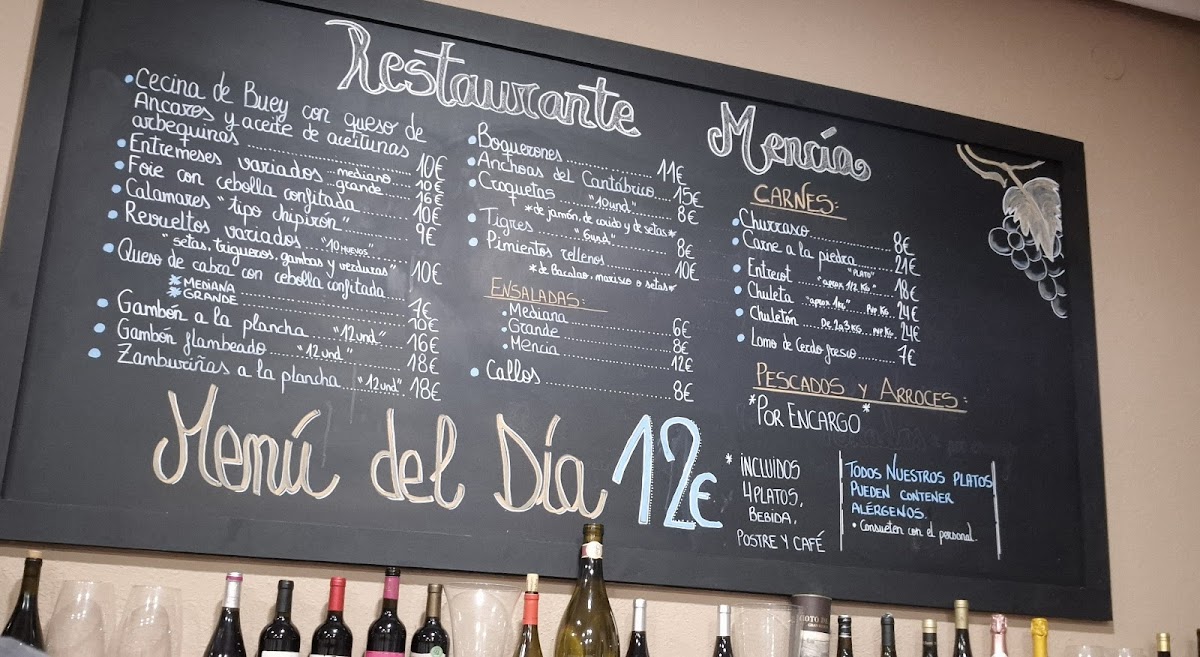 Restaurante
Mencía
• Cecina de Buey con queso de
Ancares y aceite de aceitunas
arbequinas ........ 10€
• Entremeses variados ... mediano ..... 10€
grande ..... 16€
• Foie con cebolla confitada ........ 10€
• Calamares "tipo chipirón" ........ 9€
• Revueltos variados ... "10 HUEVOS" .....
"setas, trigueros, gambas y verduras" 10€
• Queso de cabra con cebolla confitada .....
* MEDIANA ........ 7€
* GRANDE ........ 10€
• Gambón a la plancha "12und" ... 16€
• Gambón flambeado ... "12und" ..... 18€
• Zamburiñas a la plancha ... "12und" 18€
• Boquerones ........ 11€
• Anchoas del Cantábrico ..... 15€
• Croquetas ... "10und" ..... 8€
*de jamón, de cocido y de setas*
• Tigres ... "6und" ..... 8€
• Pimientos rellenos ........ 10€
*de Bacalao, marisco o setas*
ENSALADAS:
• Mediana ........ 6€
• Grande ........ 8€
• Mencia ........ 12€
• Callos ........ 8€
CARNES:
• Churrasco ........ 8€
• Carne a la piedra ........ 21€
"PLATO"
• Entrecot ... "aprox 1/2 KG" ... 18€
• Chuleta ... "aprox 1KG" ... PVP KG. 24€
• Chuletón ... De 2 a 3 KG ... PVP KG. 24€
• Lomo de Cerdo fresco ........ 7€
PESCADOS Y ARROCES:
*POR ENCARGO*
Menú del Día 12€
* INCLUIDOS
4 PLATOS,
BEBIDA,
POSTRE Y CAFÉ
TODOS NUESTROS PLATOS
PUEDEN CONTENER
ALÉRGENOS.
• Consulten con el personal.